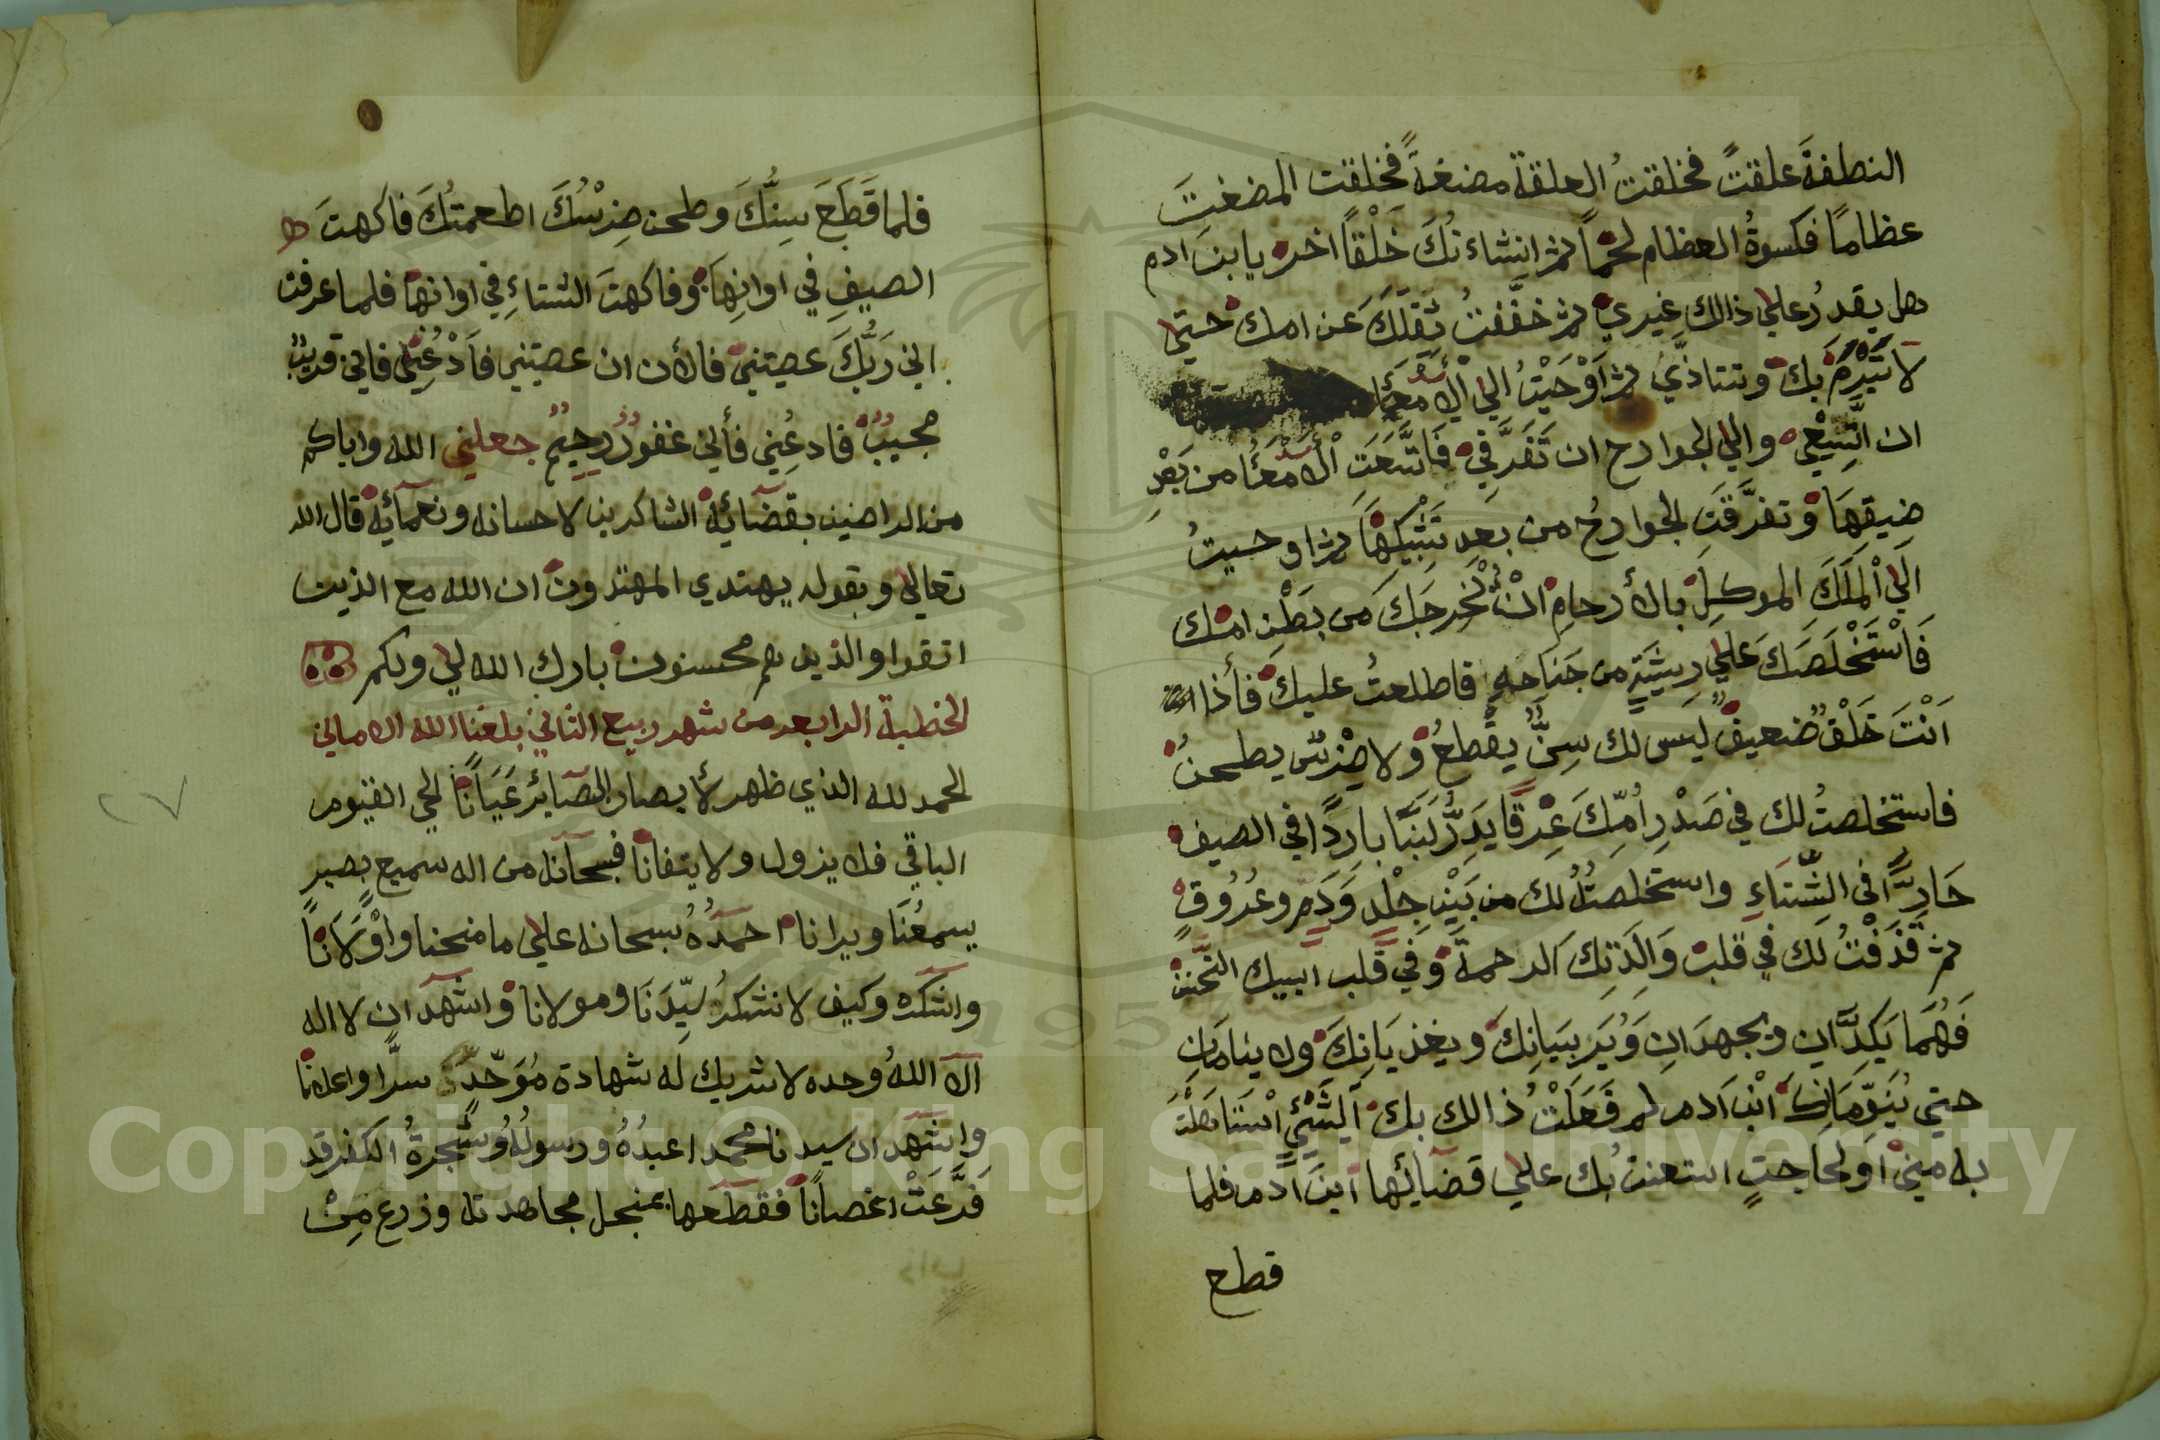 النطفةَ علقتً فخلقتُ العلقة مضغةً فخلقت المضغتَ
عظامًا فكسوةُ العظام لحمًا ثم انشاءنُكَ خَلْقًا اخر يا بن ادم
هل يقدرُ علي ذالك غيري ثم خفَّفتُ ثقلَكَ عن امك حتي
لا تَتَبرَمَّ بك وتتاذَّي ثم اَوْحَيْتُ الي الأمعَاَ
ان اتَّسِعِي والي الجوارح ان تَفَرَّقي فَاتَّسَعَتِ الأمعَاُ من بَعْدِ
ضِيقِهَا وتفرَّقَتِ الجوارحُ من بعد تَشْبِكِهَا ثم اوحيتُ
اَلي اْلمَلَكَ الموكلِ بالأرحامِ انْ يُخْرجَكَ من بَطْنِ امك
فَاسْتَخْلَصَكَ عَلي رِيشَةٍ من جَنَاحِهِ فاطلعتُ عليكَ فأذا
اَنْتَ خَلْقٌ ضعيفٌ ليس لك سِنٌّ يقطعُ ولا ضِرْسٌ يطحنُ
فاستخلصتُ لك في صَدْرِ اُمِّكَ عِرْقًا يَدِرُّ لَبَنًا بارِدًا في الصيف
حَارًّا في الشِّتَاءِ واستخلصتُهُ لك من بَيْنِ جِلْدٍ وَدَمٍ وعُرُوقٍ
ثم قَذَفْتُ لك في قلب وَالِدَتِكَ الرحمةَ وفي قلب ابيك التَّحَنُنَ
فَهُمَا يَكِدَّانِ ويجهدَانِ وَيُرَبِيَانِكَ ويغذيَانِكَ ولا ينامَانِ
حتي يُنَوِّمَانِكَ ابْنَ اَدم لم فَعَلْتُ ذالك بك اَلِشَيْئٍ اسْتَاهَلْتَ
به منِي اَو لحَاجتٍ استعنتُ بك علي قضائِها ابنَ اَدم فلما
قطع
فلما قَطَعَ سِنُّكَ وطحن ضِرْسُكَ اطعمتُكَ فاكهتَ
الصيفِ في اوانِهَا وفاكهتَ الشتاءِ في اوانهَا فلما عرفت
اني رَبُّكَ عصيتني فالأن ان عصيتني فَاَدْعُنِي فاني قريبٌ
مجيبٌ فادعُنِي فأني غفورٌ رحيمٌ جعلني الله واياكم
من الراضين بقضَائِهِ الشاكرين لاحسانه ونعمآئِهِ قال الله
تعالي وبقوله يهتدي المهتدون ان الله مع الذين
اتقوا والذين هم محسنون بارك الله لي ولكم
الخطبة الرابعه من شهر ربيع الثاني بلغنا الله الاماني
الحمد لله الذي ظهر لأبصار البصآئر عَيَانًا الحي القيوم
الباقي فلا يزول ولا يتفانا فسبحانه من اله سميع بصير
يسمعُنَا ويرانا احمدُهُ سبحانه علي ما منحنا واوْلَانَا
واشكره وكيف لا نشكرُ سيِّدَنَا ومولانا واشهد ان لا اله
الا اللهُ وحده لا شريك له شهادة مُوَحِّدٍ سرًّا واعلانًا
واشهد ان سيدنا محمدا عبدُهُ ورسولُهُ وشجرةُ الكفر قد
فَرَّعَتْ اغصانًا فقطَعها بمنجل مجاهدته وزرع مِنْ